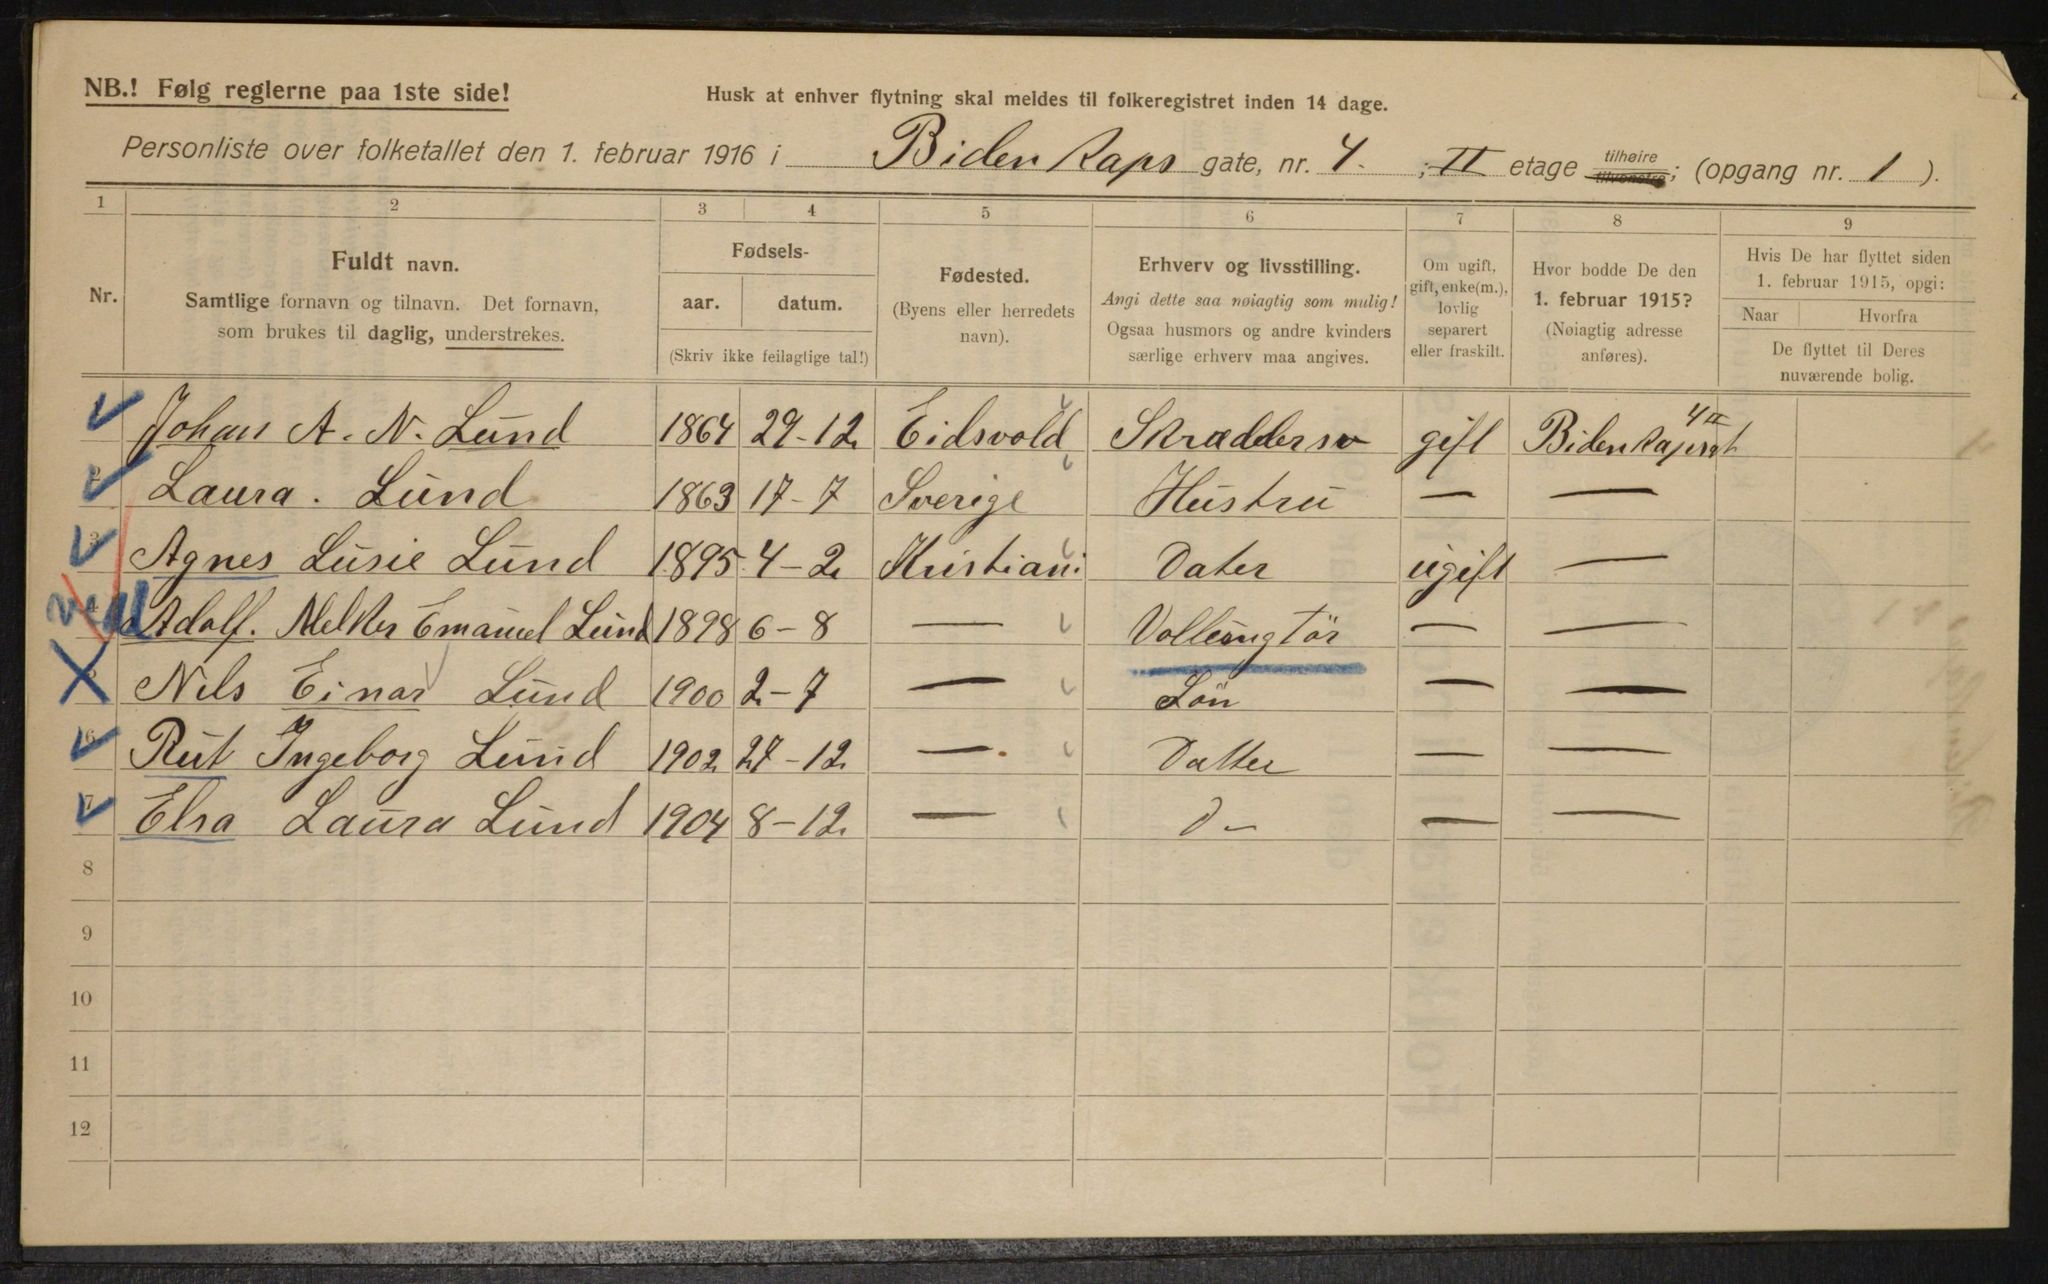 NB.! Følg reglerne paa 1ste side!
Husk at enhver flytning skal meldes til folkeregistret inden 14 dage.
Personliste over folketallet den 1. februar 1916 i Bidenkaps gate, nr. 4. ; II etage tilhøire tilvenstre; (opgang nr. 1).
1 2 3 4 5 6 7 8 9
Nr.
Fuldt navn.
Samtlige fornavn og tilnavn. Det fornavn,
som brukes til daglig, understrekes.
Fødsels-
aar. datum.
(Skriv ikke feilagtige tal!)
Fødested.
(Byens eller herredets
navn).
Erhverv og livsstilling.
Angi dette saa nøiagtig som mulig!
Ogsaa husmors og andre kvinders
særlige erhverv maa angives.
Om ugift,
gift, enke(m.),
lovlig
separert
eller fraskilt.
Hvor bodde De den
1. februar 1915?
(Nøiagtig adresse
anføres).
Hvis De har flyttet siden
1. februar 1915, opgi:
Naar Hvorfra
De flyttet til Deres
nuværende bolig.
Johan A. N. Lund 1864 29-12 Eidsvold gift 4 II
2 Laura. Lund 1863 17-7 Sverige Hustru — —
3 Agnes Lusie Lund 1895 4-2 Kristiani Dater ugift —
4 Adolf. Melker Emanuel Lund 1898 6-8 — — —
Nils Einar Lund 1900 2-7 — Sön — —
6 Rut Ingeborg Lund 1902 27-12 — Datter — —
7 Elsa Laura Lund 1904 8-12 — D— — —
8
9
10
11
12